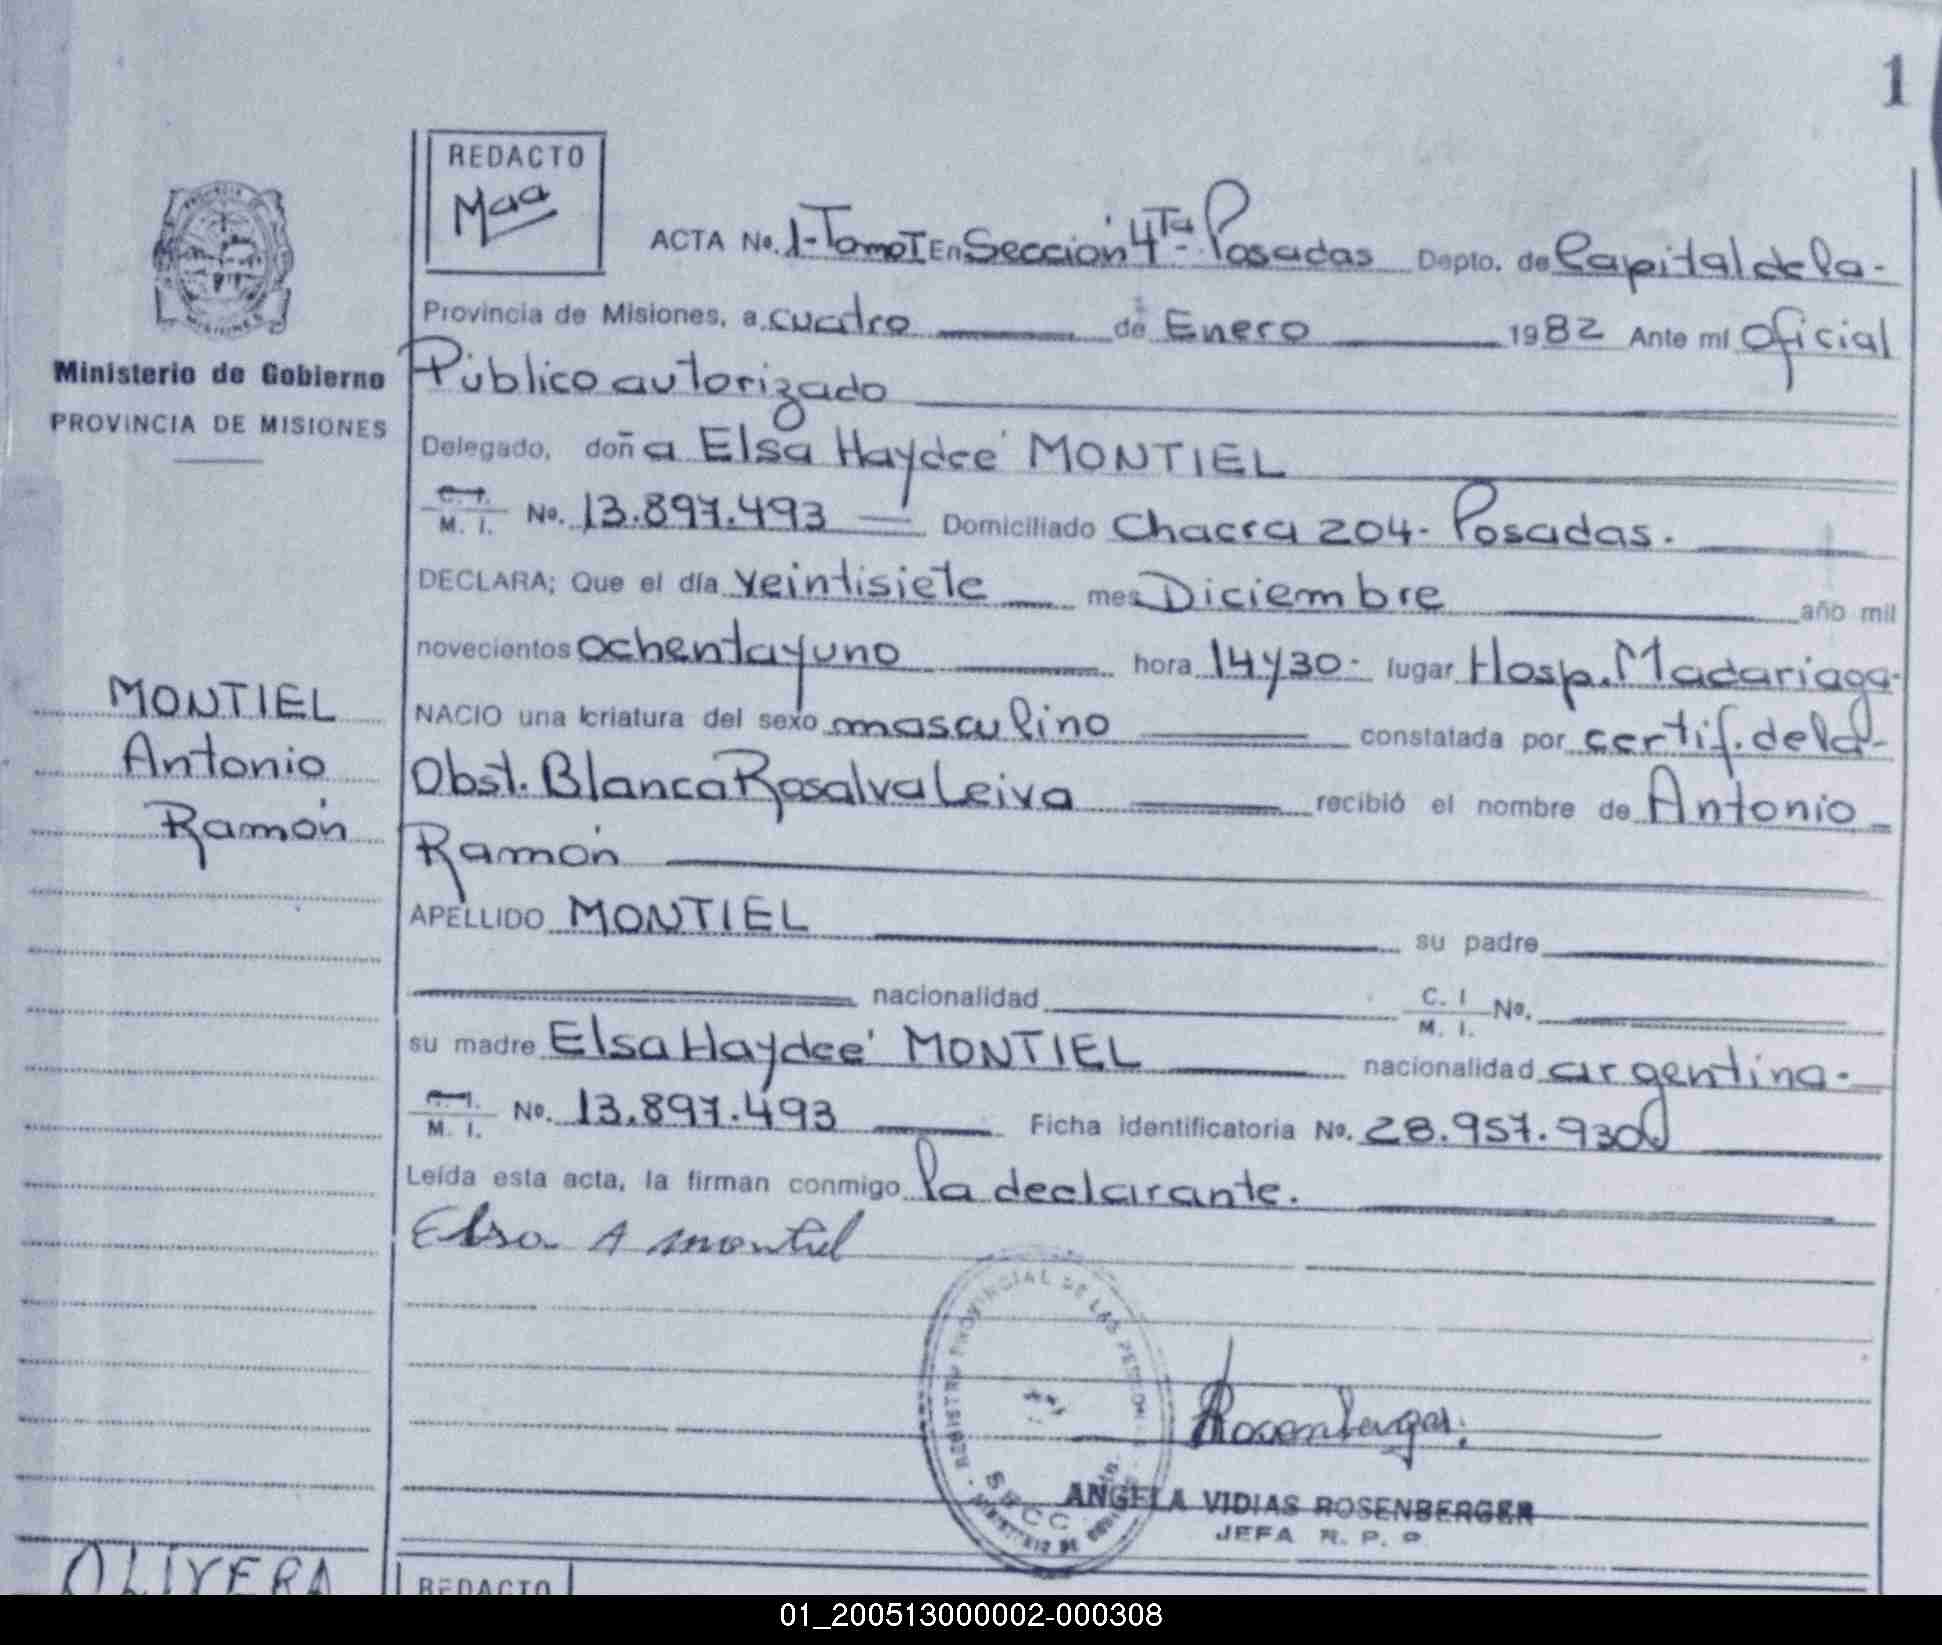 1
REDACTO
Maa
ACTA No. 1-Tomo I En Sección 4Ta- Posadas Depto. de Capital de la-
Provincia de Misiones, a cuatro de Enero 1982 Ante mí Oficial
Público autorizado
Delegado, doña Elsa Haydeé MONTIEL
C. I.
M. I. No. 13.897.493 Domiciliado Chacra 204- Posadas.
DECLARA; Que el día veintisiete mes Diciembre año mil
novecientos ochentayuno hora 14y30- lugar Hosp. Madariaga-
NACIO una criatura del sexo masculino constatada por certif. de la-
Obst. Blanca Rosalva Leiva recibió el nombre de Antonio
Ramón
APELLIDO MONTIEL su padre
nacionalidad C. I
M. I. No.
su madre Elsa Haydeé MONTIEL nacionalidad argentina.
C. I.
M. I. No. 13.897.493 Ficha identificatoria No. 28.957.930
Leída esta acta, la firman conmigo la declarante.
Elsa A montiel
Rosenberger
ANGELA VIDIAS ROSENBERGER
JEFA R. P. P.
REGISTRO PROVINCIAL DE LAS PERSONAS
Ministerio de Gobierno
PROVINCIA DE MISIONES
MONTIEL
Antonio
Ramón
OLIVERA
REDACTO
01_200513000002-000308